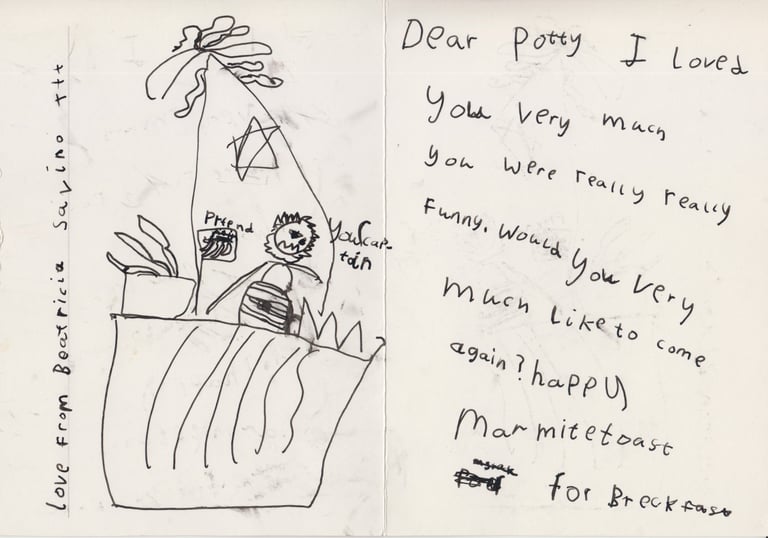 Love from Beatricia Savino +++
Prtend
YouCap-
tain
Dear Potty I Loved
You Very much
You were really really
Funny. Would You Very
Much Like to come
again? happy
Marmitetoast
for Breckfast